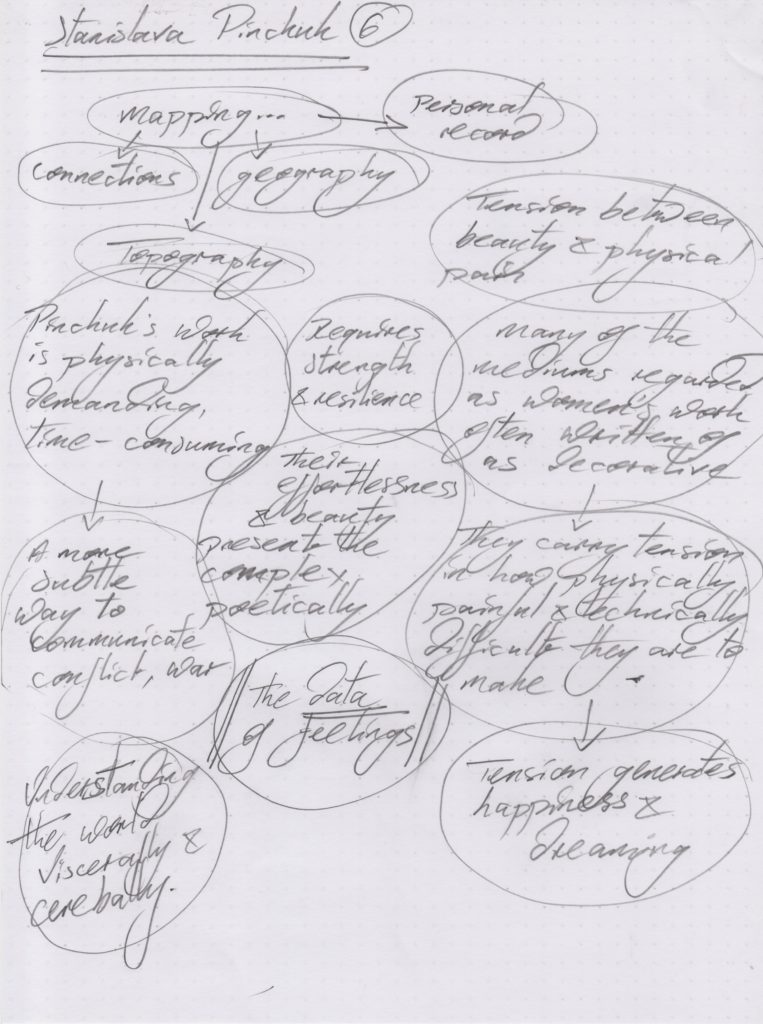 Stanislava Pinchuk 6
mapping...
Personal
record
connections
geography
Topography
Tension between
beauty & physical
pain
Pinchuk's work
is physically
demanding,
time-consuming
Requires
strength
& resilience
many of the
mediums regarded
as women's work
often written of
as decorative
Their
effortlessness
& beauty
present the
complex,
poetically
A more
subtle
way to
communicate
conflict, war
They carry tension
in how physically
painful & technically
difficult they are to
make
the data
of feelings
Understanding
the world
viscerally &
cerebally.
Tension generates
happiness &
dreaming